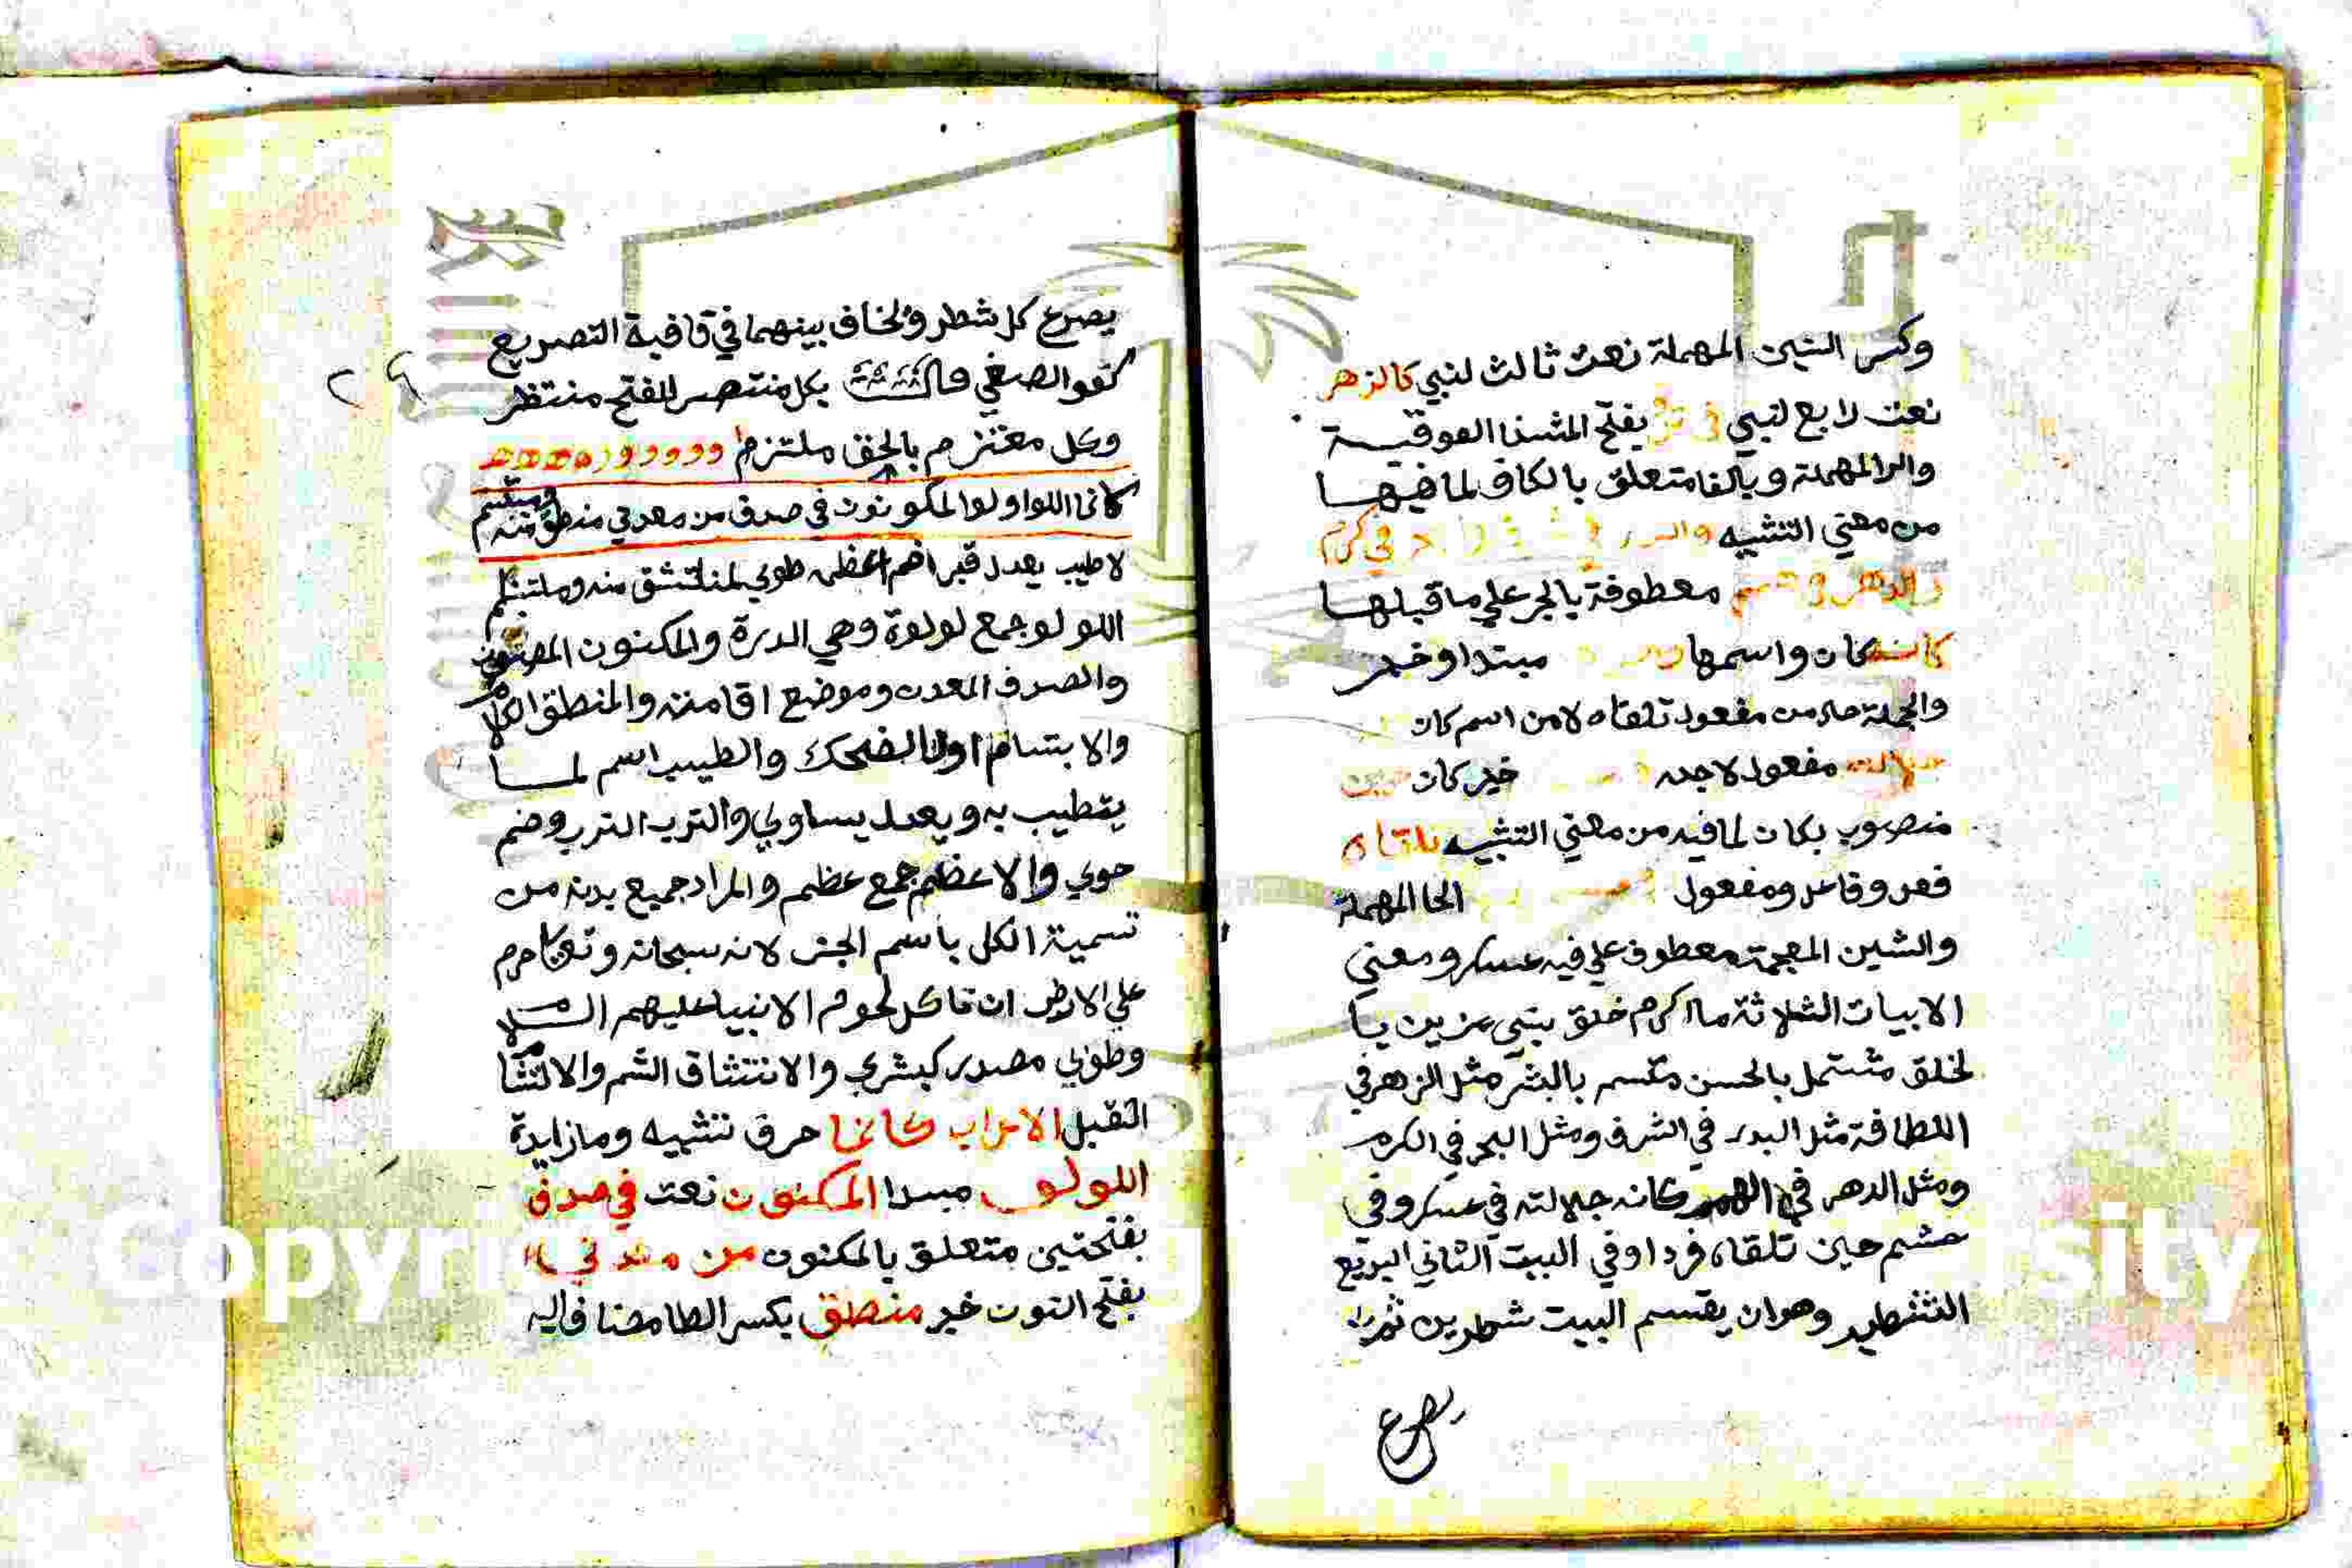 وكسر السين المهملة نعت ثالث لنبي كالزهر
نعت رابع لنبي في ترف بفتح المثناة الفوقية
والرا المهملة وبالفا متعلق بالكاف لما فيها
من معني التشبيه والبدر في شرف والبحر في كرم
والدهر في همم معطوفة بالجر علي ما قبلها
كانه كان واسمها مبتدا وخبر
والجملة حال من مفعول تلقاه لا من اسم كان
جلالته مفعول لاجله خبر كان حين
منصوب بكان لما فيه من معني التشبيه تلقاه
فعل وفاعل ومفعول الحا المهملة
والشين المعجمة معطوف علي فيه عسكر ومعني
الابيات الثلاثة ما اكرم خلق بنبي مزين با
لخلق مشتمل بالحسن متسم بالبشر مثل الزهر في
اللطافة مثل البدر في الشرف ومثل البحر في الكرم
ومثل الدهر في الهمم كانه جلالته في عسكر وفي
حشم حين تلقاه فردا وفي البيت الثاني البديع
التشطير وهو ان يقسم البيت شطرين ثم
يصرع
يصرع كل شطر ولخاف بينهما في قافية التصريع
كقوا الصفي بكل منتصر للفتح منتظر
وكل معتزم بالحق ملتزم
كانما اللولو المكنون في صدف من معدني منطق منه ومبتسم
لا طيب يعدل تربا ضم اعظمه طوبي لمنتشق منه وملتثم
اللولو جمع لولوة وهي الدرة والمكنون المصون
والصدف المعدن وموضع اقامته والمنطق الكلام
والابتسام اول الضحك والطيب اسم لما
يتطيب به ويعدل يساوي والترب الترب وضم
حوي والاعظم جمع عظم والمراد جميع بدنه من
تسمية الكل باسم الجز لانه سبحانه وتعالي حرم
علي الارض ان تاكل لحوم الانبيا عليهم السلام
وطوبي مصدر كبشري والانتشاق الشم والالتثام
التقبل الاعراب كانما حرف تشبيه وما زايدة
اللولو مبتدا المكنون نعت في صدف
بفتحتين متعلق بالمكنون من معدني
بفتح النون خبر منطق بكسر الطا مضاف اليه